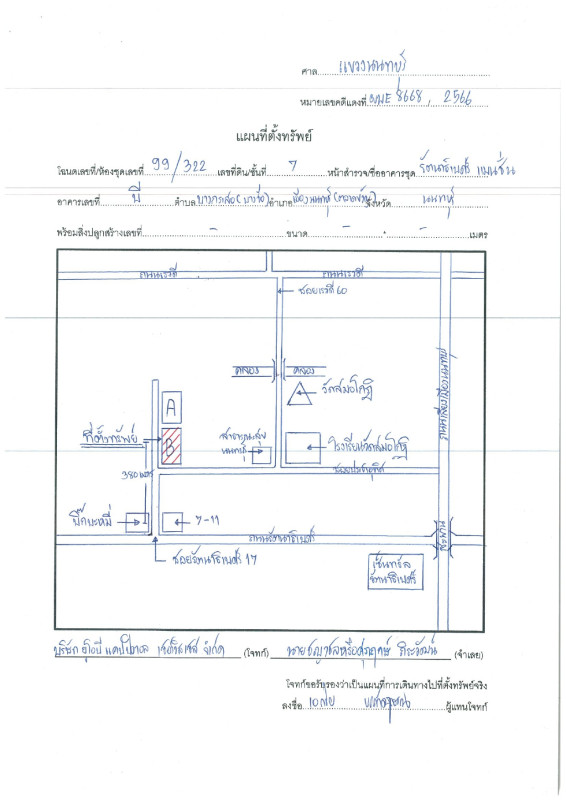 ศาล แขวงนนทบุรี
หมายเลขคดีแดงที่ ผบE 8668, 2566
แผนที่ตั้งทรัพย์
โฉนดเลขที่/ห้องชุดเลขที่ 99/322 เลขที่ดิน/ชั้นที่ 7 หน้าสำรวจ/ชื่ออาคารชุด รัตนาธิเบศร์ แมนชั่น
อาคารเลขที่ บี ตำบล บางกระสอ (บางซื่อ) อำเภอ เมืองนนทบุรี (ตลาดขวัญ) จังหวัด นนทบุรี
พร้อมสิ่งปลูกสร้างเลขที่ - ขนาด - - เมตร
ถนนเรวดี ถนนเรวดี
ซอยเรวดี 60
คลอง คลอง
ถนนเลี่ยงเมืองนนทบุรี
วัดสมอ
A
ที่ตั้งทรัพย์ B
สาธารณสุข
นนทบุรี
โรงเรียนวัดสมอ
380 เมตร
บิ๊กบะหมี่ 7-11
ถนนรัตนาธิเบศร์
สะพาน
ซอยรัตนาธิเบศร์ 17
เซ็นทรัล
รัตนาธิเบศร์
บริษัท แคปปิตอล จำกัด (โจทก์) นาย (จำเลย)
โจทก์ขอรับรองว่าเป็นแผนที่การเดินทางไปที่ตั้งทรัพย์จริง
ลงชื่อ ผู้แทนโจทก์